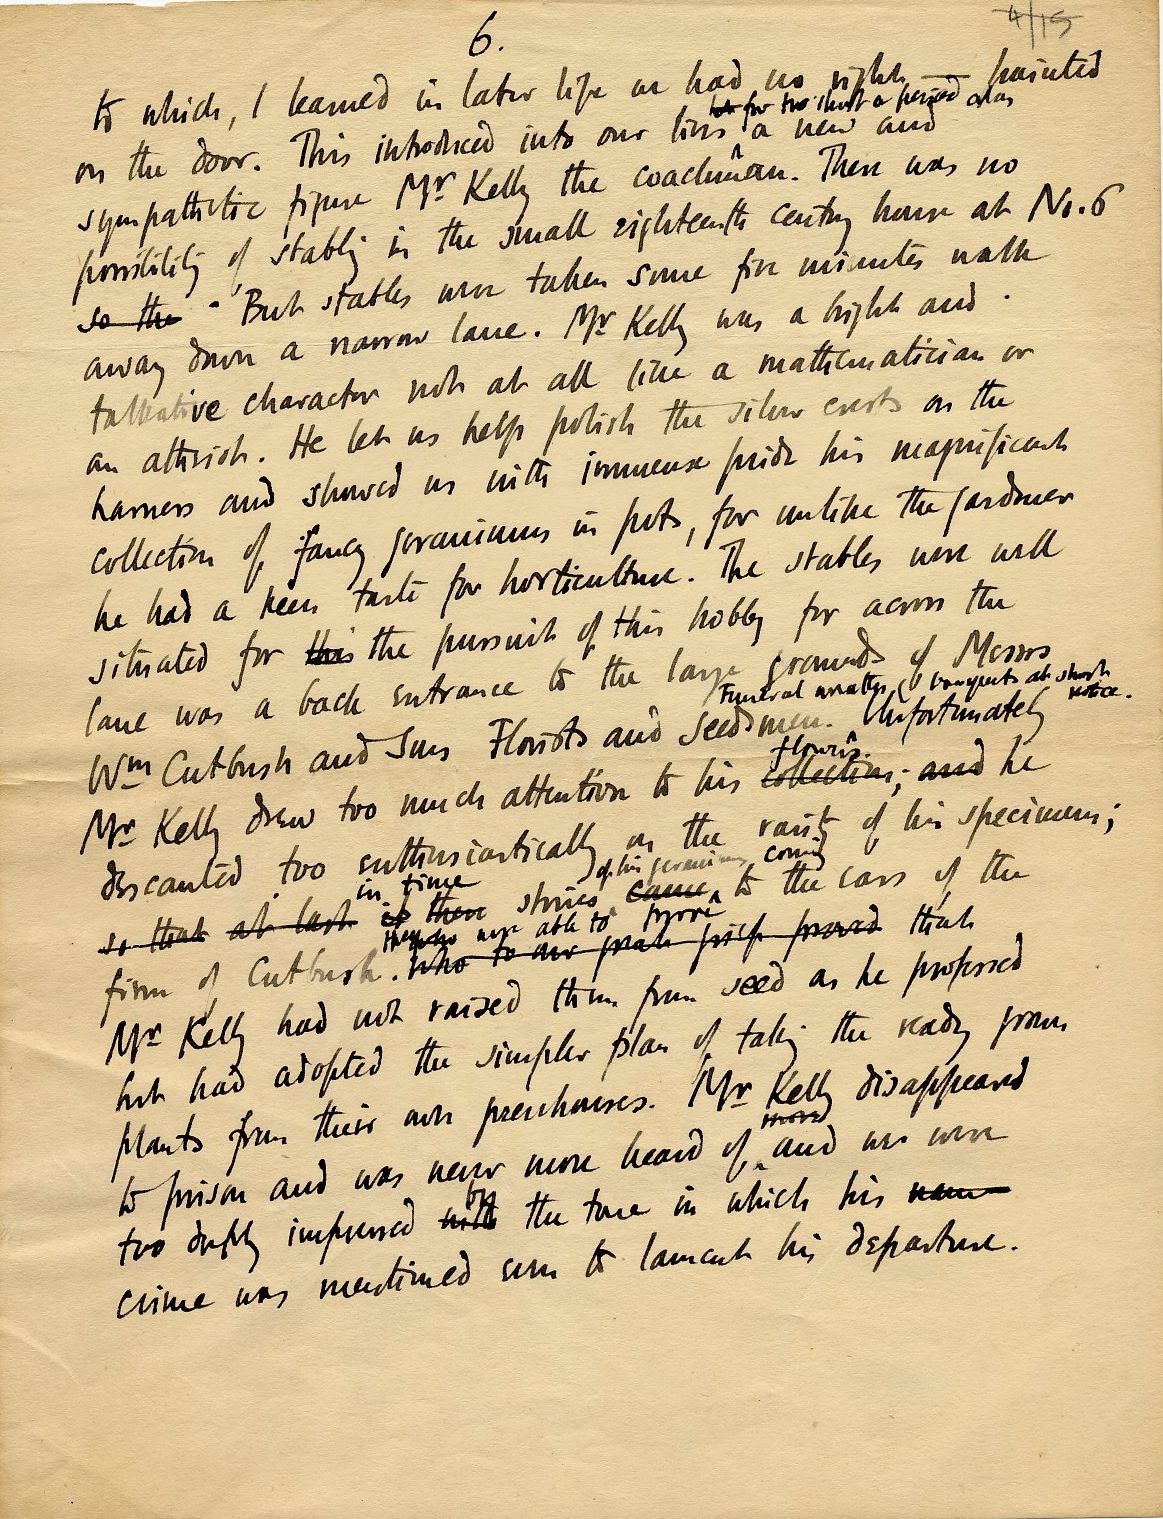 6.
4/15
to which, I learned in later life we had no right — painted
but for too short a period alas
on the door. This introduced into our lives a new and
sympathetic figure Mr Kelly the coachman. There was no
possibility of stabling in the small eighteenth century house at No. 6
so the But stables were taken some five minutes walk
away down a narrow lane. Mr Kelly was a bright and
talkative character not at all like a mathematician or
an atheist. He let us help polish the silver crests on the
harness and showed us with immense pride his magnificent
collection of fancy geraniums in pots, for unlike the gardener
he had a keen taste for horticulture. The stables were well
situated for this the pursuit of this hobby for across the
lane was a back entrance to the large grounds of Messrs
Funeral wreaths & bouquets at short notice.
Wm Cutbush and Sons Florists and Seedsmen. Unfortunately
flowers.
Mr Kelly drew too much attention to his collection; and he
descanted too enthusiastically on the rarity of his specimens;
in time of his geraniums coming
so that at last if there stories came to the ears of the
they who were able to prove
firm of Cutbush. who to our great grief proved that
Mr Kelly had not raised them from seed as he professed
but had adopted the simpler plan of taking the ready grown
plants from their own greenhouses. Mr Kelly disappeared
more
to prison and was never more heard of, and we were
by
too deeply impressed with the tone in which his name
crime was mentioned even to lament his departure.